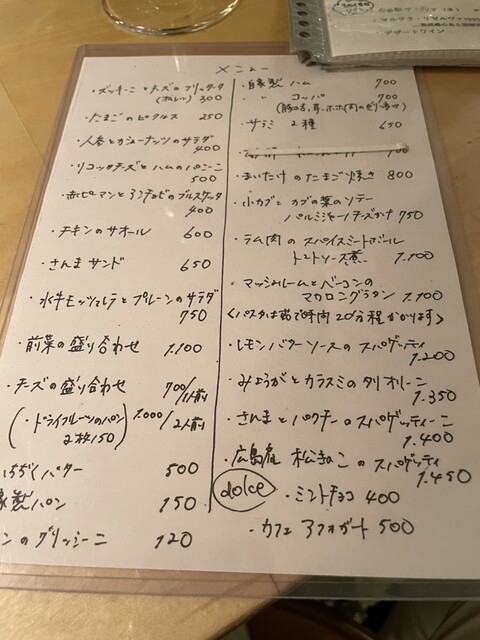 メニュー
・ズッキーニとチーズのフリッタータ
(オムレツ) 300
・たまごのピクルス 250
・人参とカシューナッツのサラダ
400
・リコッタチーズとハムのパニーニ
500
・赤ピーマンとアンチョビのブルスケッタ
400
・チキンのサオール 600
・さんまサンド 650
・水牛モッツァレラとプルーンのサラダ
750
・前菜の盛り合わせ 1.100
・チーズの盛り合わせ 700/1人前
(・ドライフルーツのパン 2枚150) 1.000/2人前
いちぢくバター 500
家製パン 150
ンのグリッシーニ 120
・自家製ハム 700
・〃 コッパ 700
(豚舌、耳、ホホ肉のゼリー寄せ)
・サラミ 2種 650
700
・まいたけのたまご焼き 800
・小カブとカブの葉のソテー
パルミジャーノチーズがけ 750
・ラム肉のスパイスミートボール
トマトソース煮 1.100
・マッシュルームとベーコンの
マカロニグラタン 1.100
<パスタは茹で時間20分程かかります>
・レモンバターソースのスパゲッティ
1.200
・みょうがとカラスミのタリオリーニ
1.350
・さんまとパクチーのスパゲッティーニ
1.400
・広島産 松きのこのスパゲッティ
1.450
dolce
・ミントチョコ 400
・カフェアフォガート 500
・デザートワイン